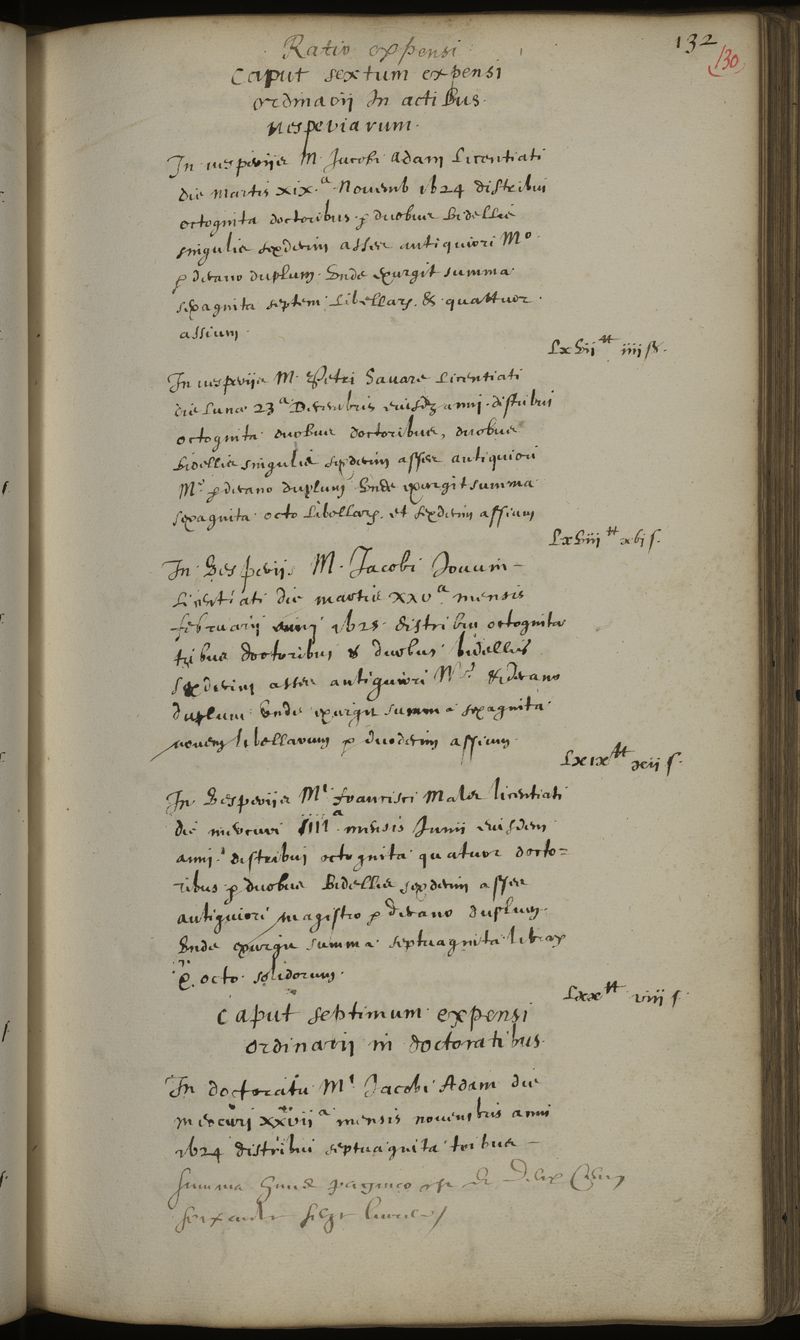 132
130
Ratio expensi
Caput sextum expensi
ordinarij In actibus
vesperiarum.
In vesperijs M. Jacobi Adam Licentiati
die martis xix.a Novemb 1624 distribui
octoginta doctoribus & duobus bidellis
singulis sexdecim asses antiquiori Mo
& decano duplum. Unde exurgit summa
sexaginta septem libellarum & quattuor
assium
Lxvii tt iiij s.
In vesperijs M. Petri Savare Licentiati
die lunæ 23a Decembris eiusdem anni distribui
octoginta duobus doctoribus, duobus
bidellis singulis sexdecim asses antiquiori
Mo & decano duplum Unde exurgit summa
sexaginta octo libellarum et sexdecim assium
Lxviij tt xvj s.
In Vesperijs M. Jacobi
Licentiati die martis xxva mensis
februarij anni 1625 distribui octoginta
tribus doctoribus & duobus bidellis
sexdecim asses antiquiori Mo & decano
duplum Unde exurgit summa sexaginta
novem libellarum & duodecim assium
Lxix tt xij s.
In Vesperijs Mi francisci Males licentiati
die mercurij iiija mensis Junij eiusdem
anni distribui octoginta quatuor docto=
ribus & duobus Bidellis sexdecim asses
antiquiori magistro & decano duplum
Unde exurgit summa septuaginta librarum
& octo solidorum
Lxx tt viij s
Caput septimum expensi
ordinarij in doctoratibus
In doctoratu Mi Jacobi Adam die
mercurij xxvija mensis novembris anni
1624 distribui septuaginta tribus
Summa huius paginæ